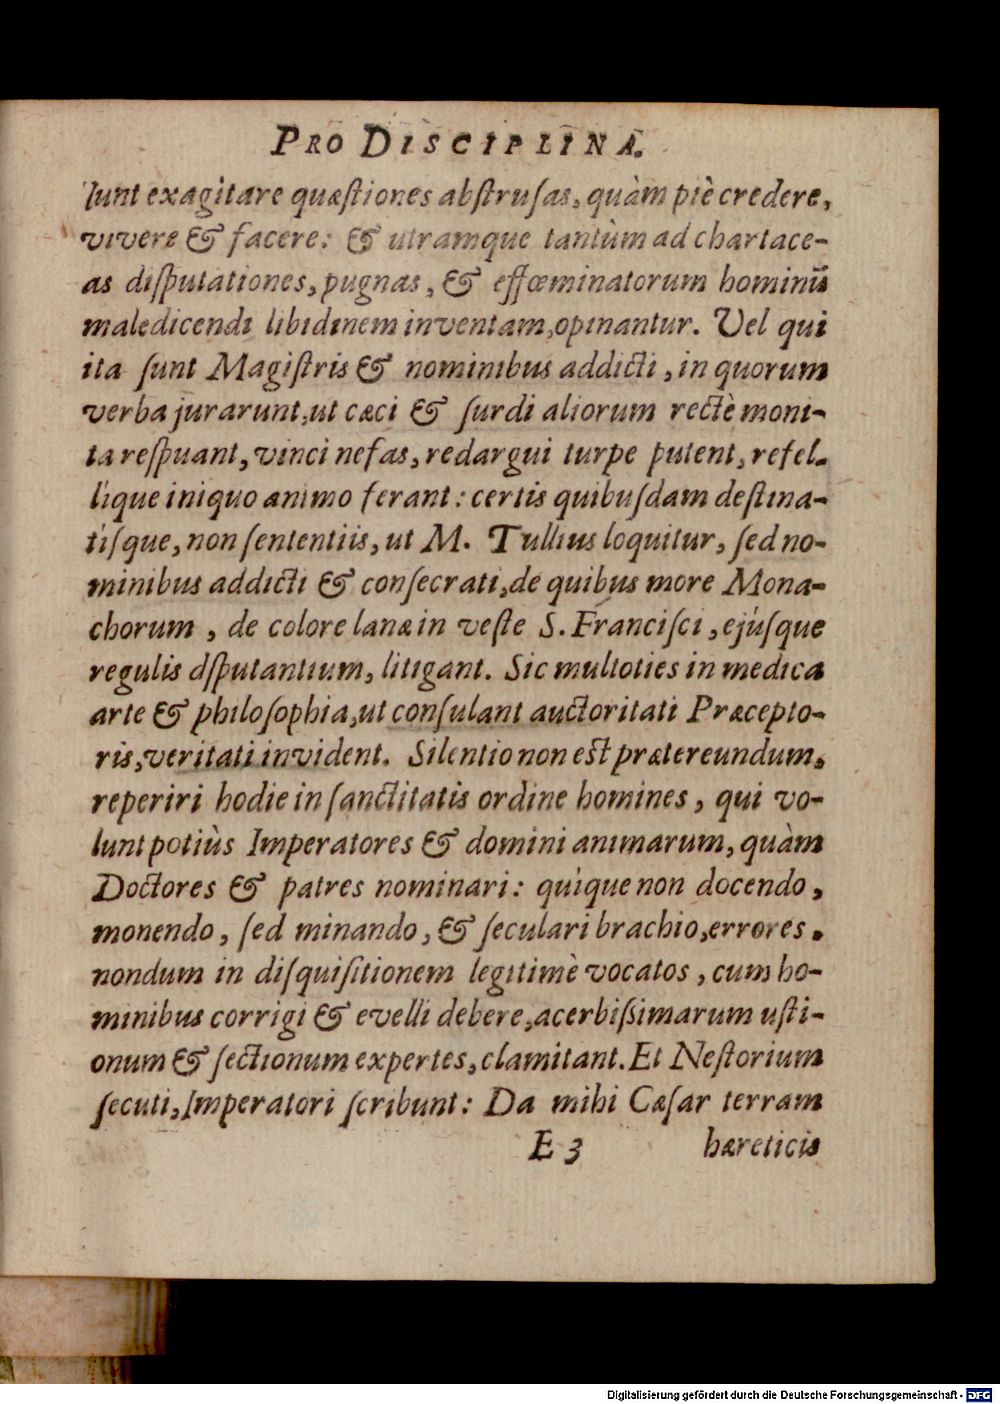 PRO DISCIPLINA.
lunt exagitare quæstiones abstrusas, quàm piè credere,
vivere & facere: & utramque tantùm ad chartace-
as disputationes, pugnas, & effœminatorum hominũ
maledicendi libidinem inventam, opinantur. Vel qui
ita sunt Magistris & nominibus addicti, in quorum
verba jurarunt, ut cæci & surdi aliorum rectè moni-
ta respuant, vinci nefas, redargui turpe putent, refel-
lique iniquo animo ferant: certis quibusdam destina-
tisque, non sententiis, ut M. Tullius loquitur, sed no-
minibus addicti & consecrati, de quibus more Mona-
chorum, de colore lanæ in veste S. Francisci, ejúsque
regulis dsputantium, litigant. Sic multoties in medica
arte & philosophia, ut consulant auctoritati Præcepto-
ris, veritati invident. Silentio non est prætereundum,
reperiri hodie in sanctitatis ordine homines, qui vo-
lunt potiùs Imperatores & domini animarum, quàm
Doctores & patres nominari: quique non docendo,
monendo, sed minando, & seculari brachio, errores.
nondum in disquisitionem legitimè vocatos, cum ho-
minibus corrigi & evelli debere, acerbissimarum usti-
onum & sectionum expertes, clamitant. Et Nestorium
secuti, Imperatori scribunt: Da mihi Cæsar terram
E 3 hæreticis
Digitalisierung gefördert durch die Deutsche Forschungsgemeinschaft - DFG